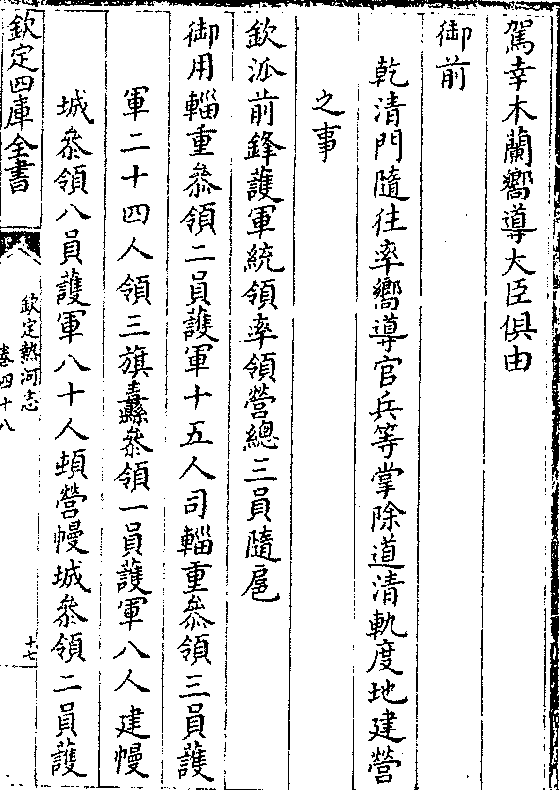 駕幸木蘭嚮導大臣俱由
御前
乾清門隨往率嚮導官兵等掌除道清軌度地建營
之事
欽派前鋒護軍統領率領營總三員隨扈
御用輜重叅領二員護軍十五人司輜重叅領三員護
軍二十四人領三旗纛叅領一員護軍八人建幔
城叅領八員護軍八十人頓營幔城叅領二員護
欽定四庫全書
欽定熱河志
卷四十八
十七